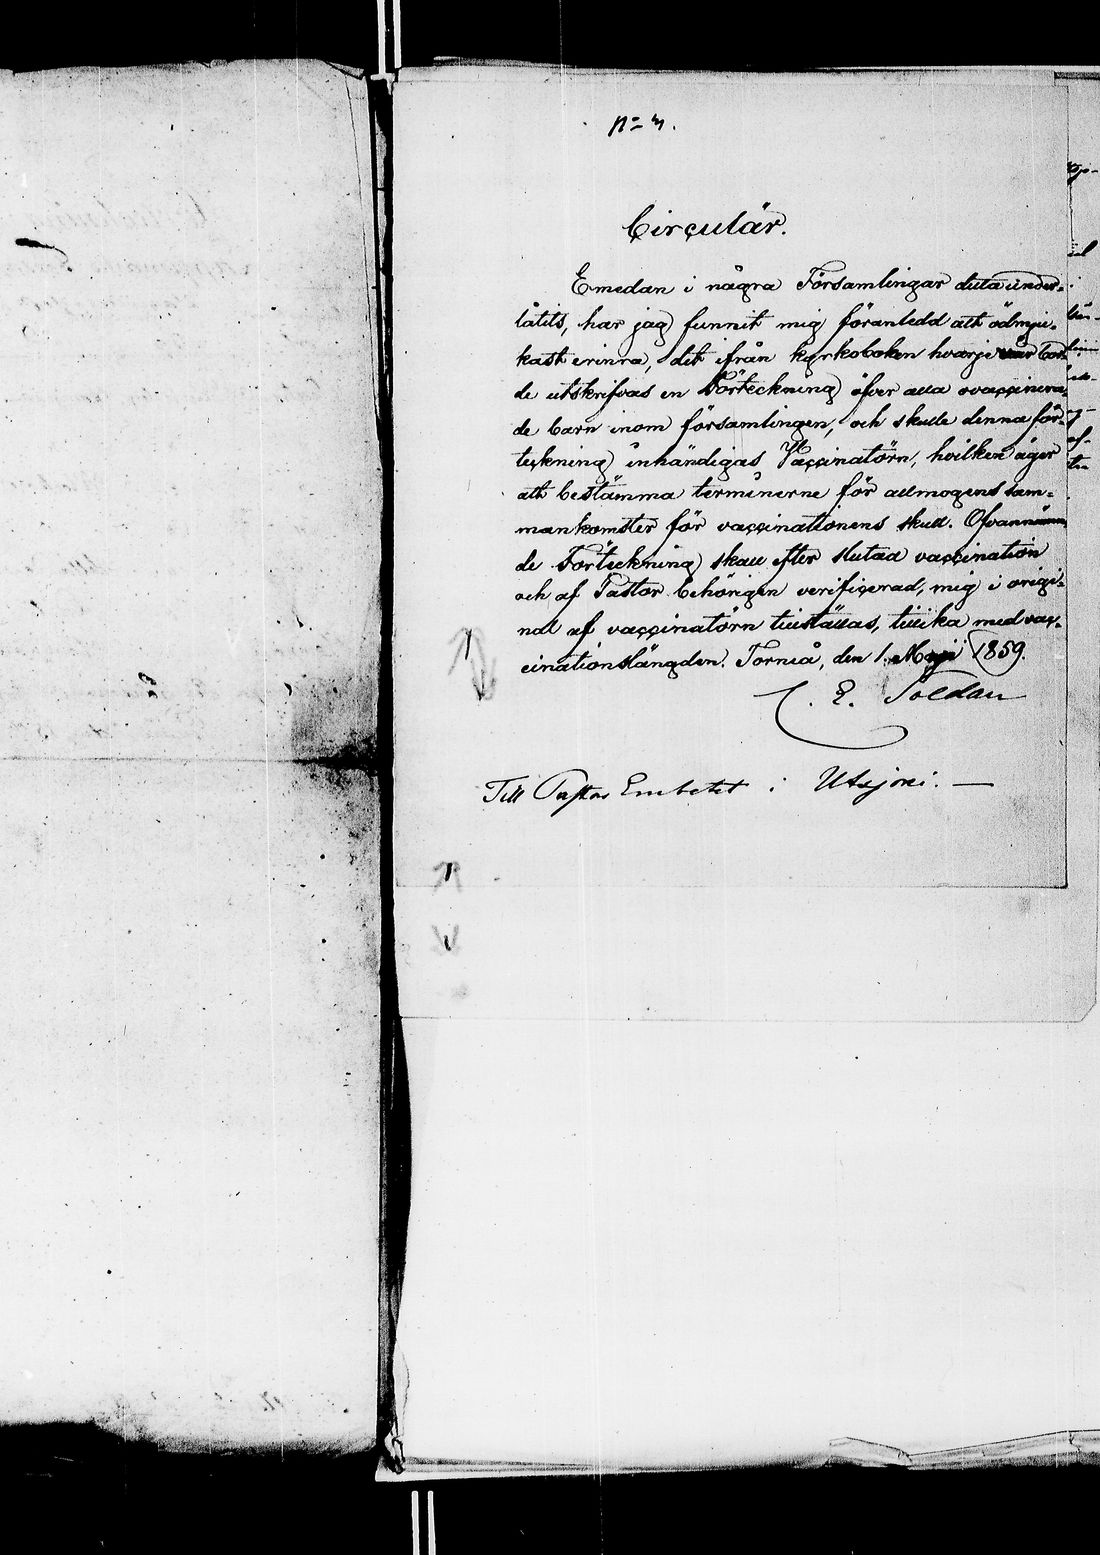 Circulär.
Emedan i några Församlingar detta under-
låtits, har jag funnit mig föranledd att ödmju-
kast erinra, det ifrån kyrkoboken hvarje vår bor-
de utskrifvas en Förteckning öfver alla ovaccinera-
de barn inom församlingen, och skulle denna för-
teckning inhändigas Vaccinatörn, hvilken äger
att bestämma terminerne för allmogens sam-
mankomster för vaccinationens skull. Ofvannämn
de Förteckning skall efter slutad vaccination
och af Pastor behörigen verificerad, mig i origi-
nal af vaccinatörn tillställas, tillika med vac-
cinationslängden. Torneå, den 1. Maji 1859.
C. E. Soldan
Till Pastors Embetet i Utsjoki. —